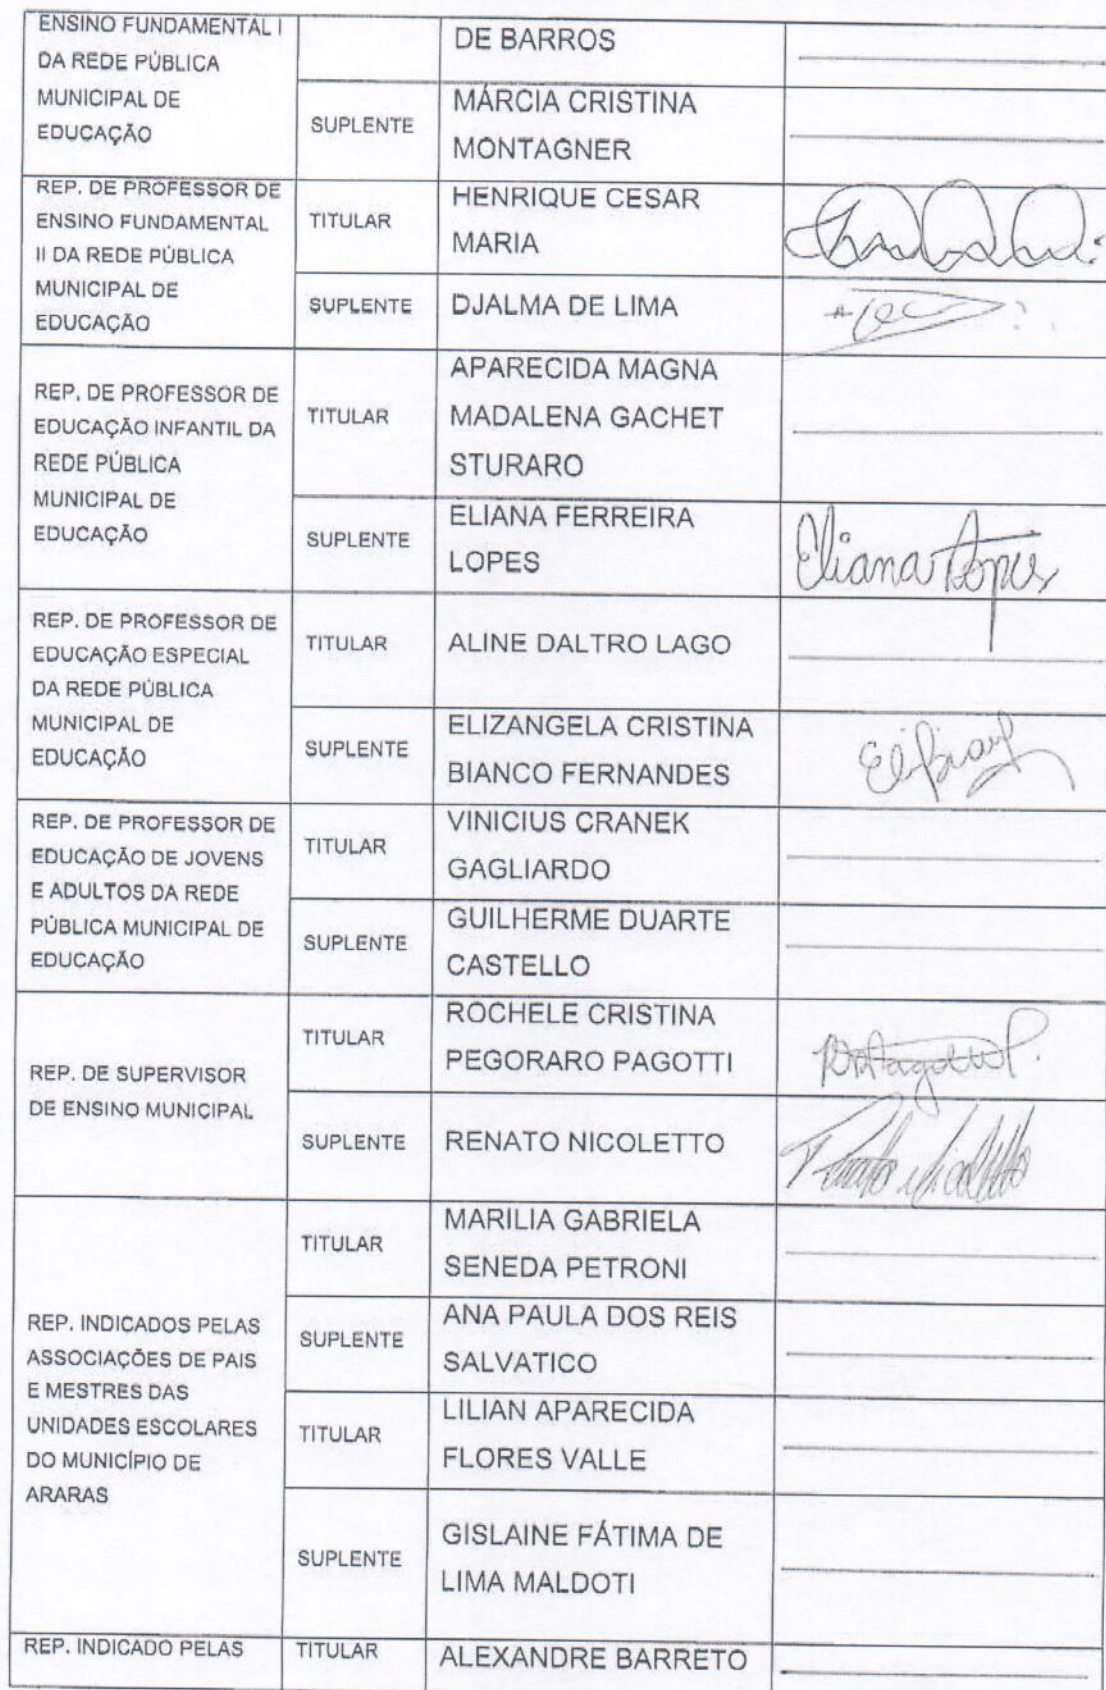 ENSINO FUNDAMENTAL I
DA REDE PÚBLICA
MUNICIPAL DE
EDUCAÇÃO
DE BARROS
SUPLENTE
MÁRCIA CRISTINA
MONTAGNER
REP. DE PROFESSOR DE
ENSINO FUNDAMENTAL
II DA REDE PÚBLICA
MUNICIPAL DE
EDUCAÇÃO
TITULAR
HENRIQUE CESAR
MARIA
SUPLENTE
DJALMA DE LIMA
REP. DE PROFESSOR DE
EDUCAÇÃO INFANTIL DA
REDE PÚBLICA
MUNICIPAL DE
EDUCAÇÃO
TITULAR
APARECIDA MAGNA
MADALENA GACHET
STURARO
SUPLENTE
ELIANA FERREIRA
LOPES
Eliana Lopes
REP. DE PROFESSOR DE
EDUCAÇÃO ESPECIAL
DA REDE PÚBLICA
MUNICIPAL DE
EDUCAÇÃO
TITULAR
ALINE DALTRO LAGO
SUPLENTE
ELIZANGELA CRISTINA
BIANCO FERNANDES
REP. DE PROFESSOR DE
EDUCAÇÃO DE JOVENS
E ADULTOS DA REDE
PÚBLICA MUNICIPAL DE
EDUCAÇÃO
TITULAR
VINICIUS CRANEK
GAGLIARDO
SUPLENTE
GUILHERME DUARTE
CASTELLO
REP. DE SUPERVISOR
DE ENSINO MUNICIPAL
TITULAR
ROCHELE CRISTINA
PEGORARO PAGOTTI
SUPLENTE
RENATO NICOLETTO
Renato Nicoletto
REP. INDICADOS PELAS
ASSOCIAÇÕES DE PAIS
E MESTRES DAS
UNIDADES ESCOLARES
DO MUNICÍPIO DE
ARARAS
TITULAR
MARILIA GABRIELA
SENEDA PETRONI
SUPLENTE
ANA PAULA DOS REIS
SALVATICO
TITULAR
LILIAN APARECIDA
FLORES VALLE
SUPLENTE
GISLAINE FÁTIMA DE
LIMA MALDOTI
REP. INDICADO PELAS
TITULAR
ALEXANDRE BARRETO